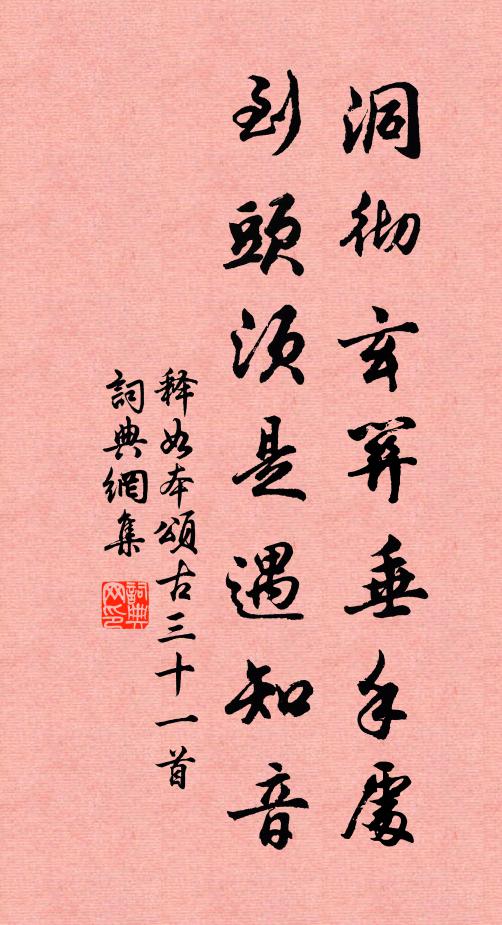 洞彻玄關垂手處
到頭須是遇知音
释如本頌古三十一首
詞典網集
詞典网印